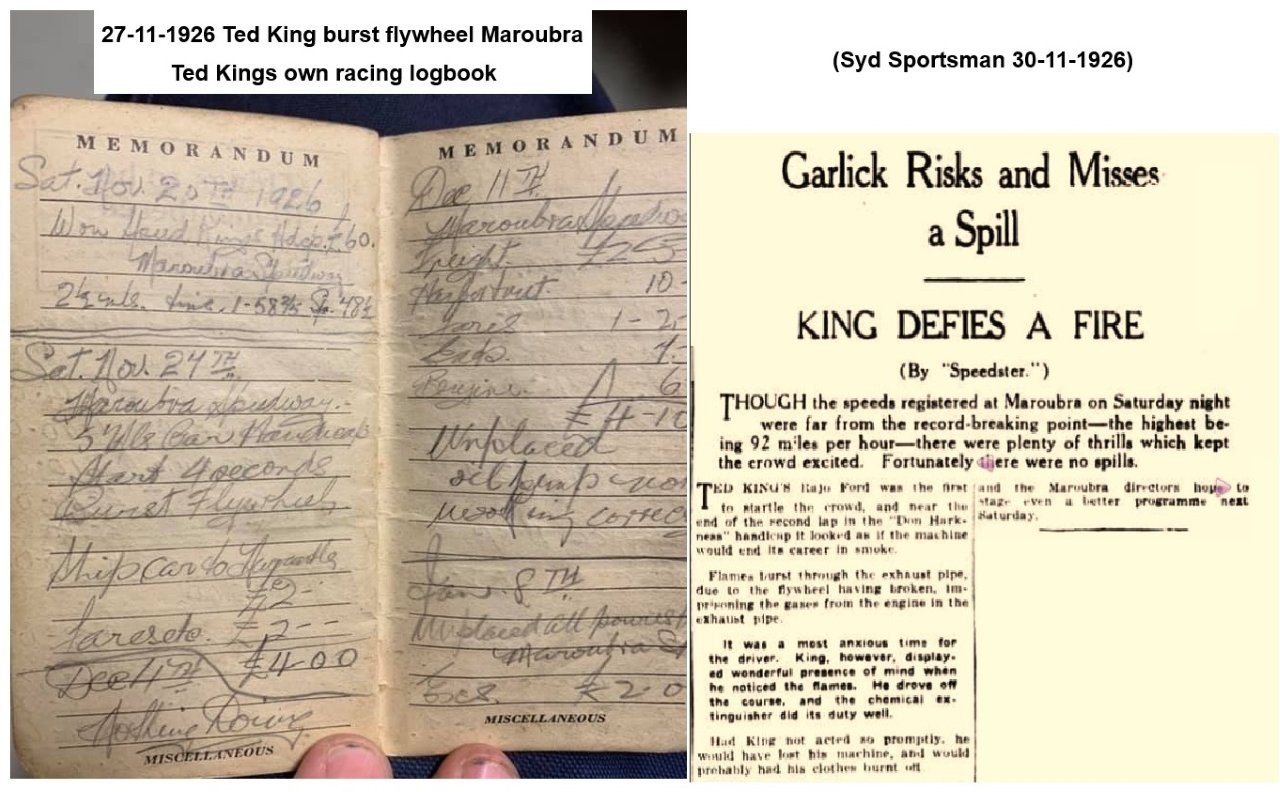 27-11-1926 Ted King burst flywheel Maroubra
Ted Kings own racing logbook
MEMORANDUM
Sat. Nov. 20TH 1926
Won Kings Hdcp. £60.
Maroubra Speedway
2½ mls. time. 1-58
Sat. Nov. 24TH
Maroubra Speedway.
5 Mle Car Handicap
Start 4 seconds
Burst Flywheel
Ship car to Newcastle
£2-
Fares etc. £2--
Dec 4TH £4-00
Nothing Doing
MISCELLANEOUS
MEMORANDUM
Dec 11TH
Maroubra Speedway
Freight. £2
10-
Fares 1-2-
4-
Benzine. 6
£4-10
Unplaced
oil pump not
working correc
Jan. 8TH
Unplaced all
Maroubra Sp
£20
MISCELLANEOUS
(Syd Sportsman 30-11-1926)
Garlick Risks and Misses
a Spill
KING DEFIES A FIRE
(By "Speedster.")
THOUGH the speeds registered at Maroubra on Saturday night
were far from the record-breaking point—the highest be-
ing 92 miles per hour—there were plenty of thrills which kept
the crowd excited. Fortunately there were no spills.
TED KING'S Rajo Ford was the first
to startle the crowd, and near the
end of the second lap in the "Don Hark-
ness" handicap it looked as if the machine
would end its career in smoke.
Flames burst through the exhaust pipe,
due to the flywheel having broken, im-
prisoning the gases from the engine in the
exhaust pipe.
It was a most anxious time for
the driver. King, however, display-
ed wonderful presence of mind when
he noticed the flames. He drove off
the course, and the chemical ex-
tinguisher did its duty well.
Had King not acted so promptly, he
would have lost his machine, and would
probably had his clothes burnt off
and the Maroubra directors hope to
stage even a better programme next
Saturday.